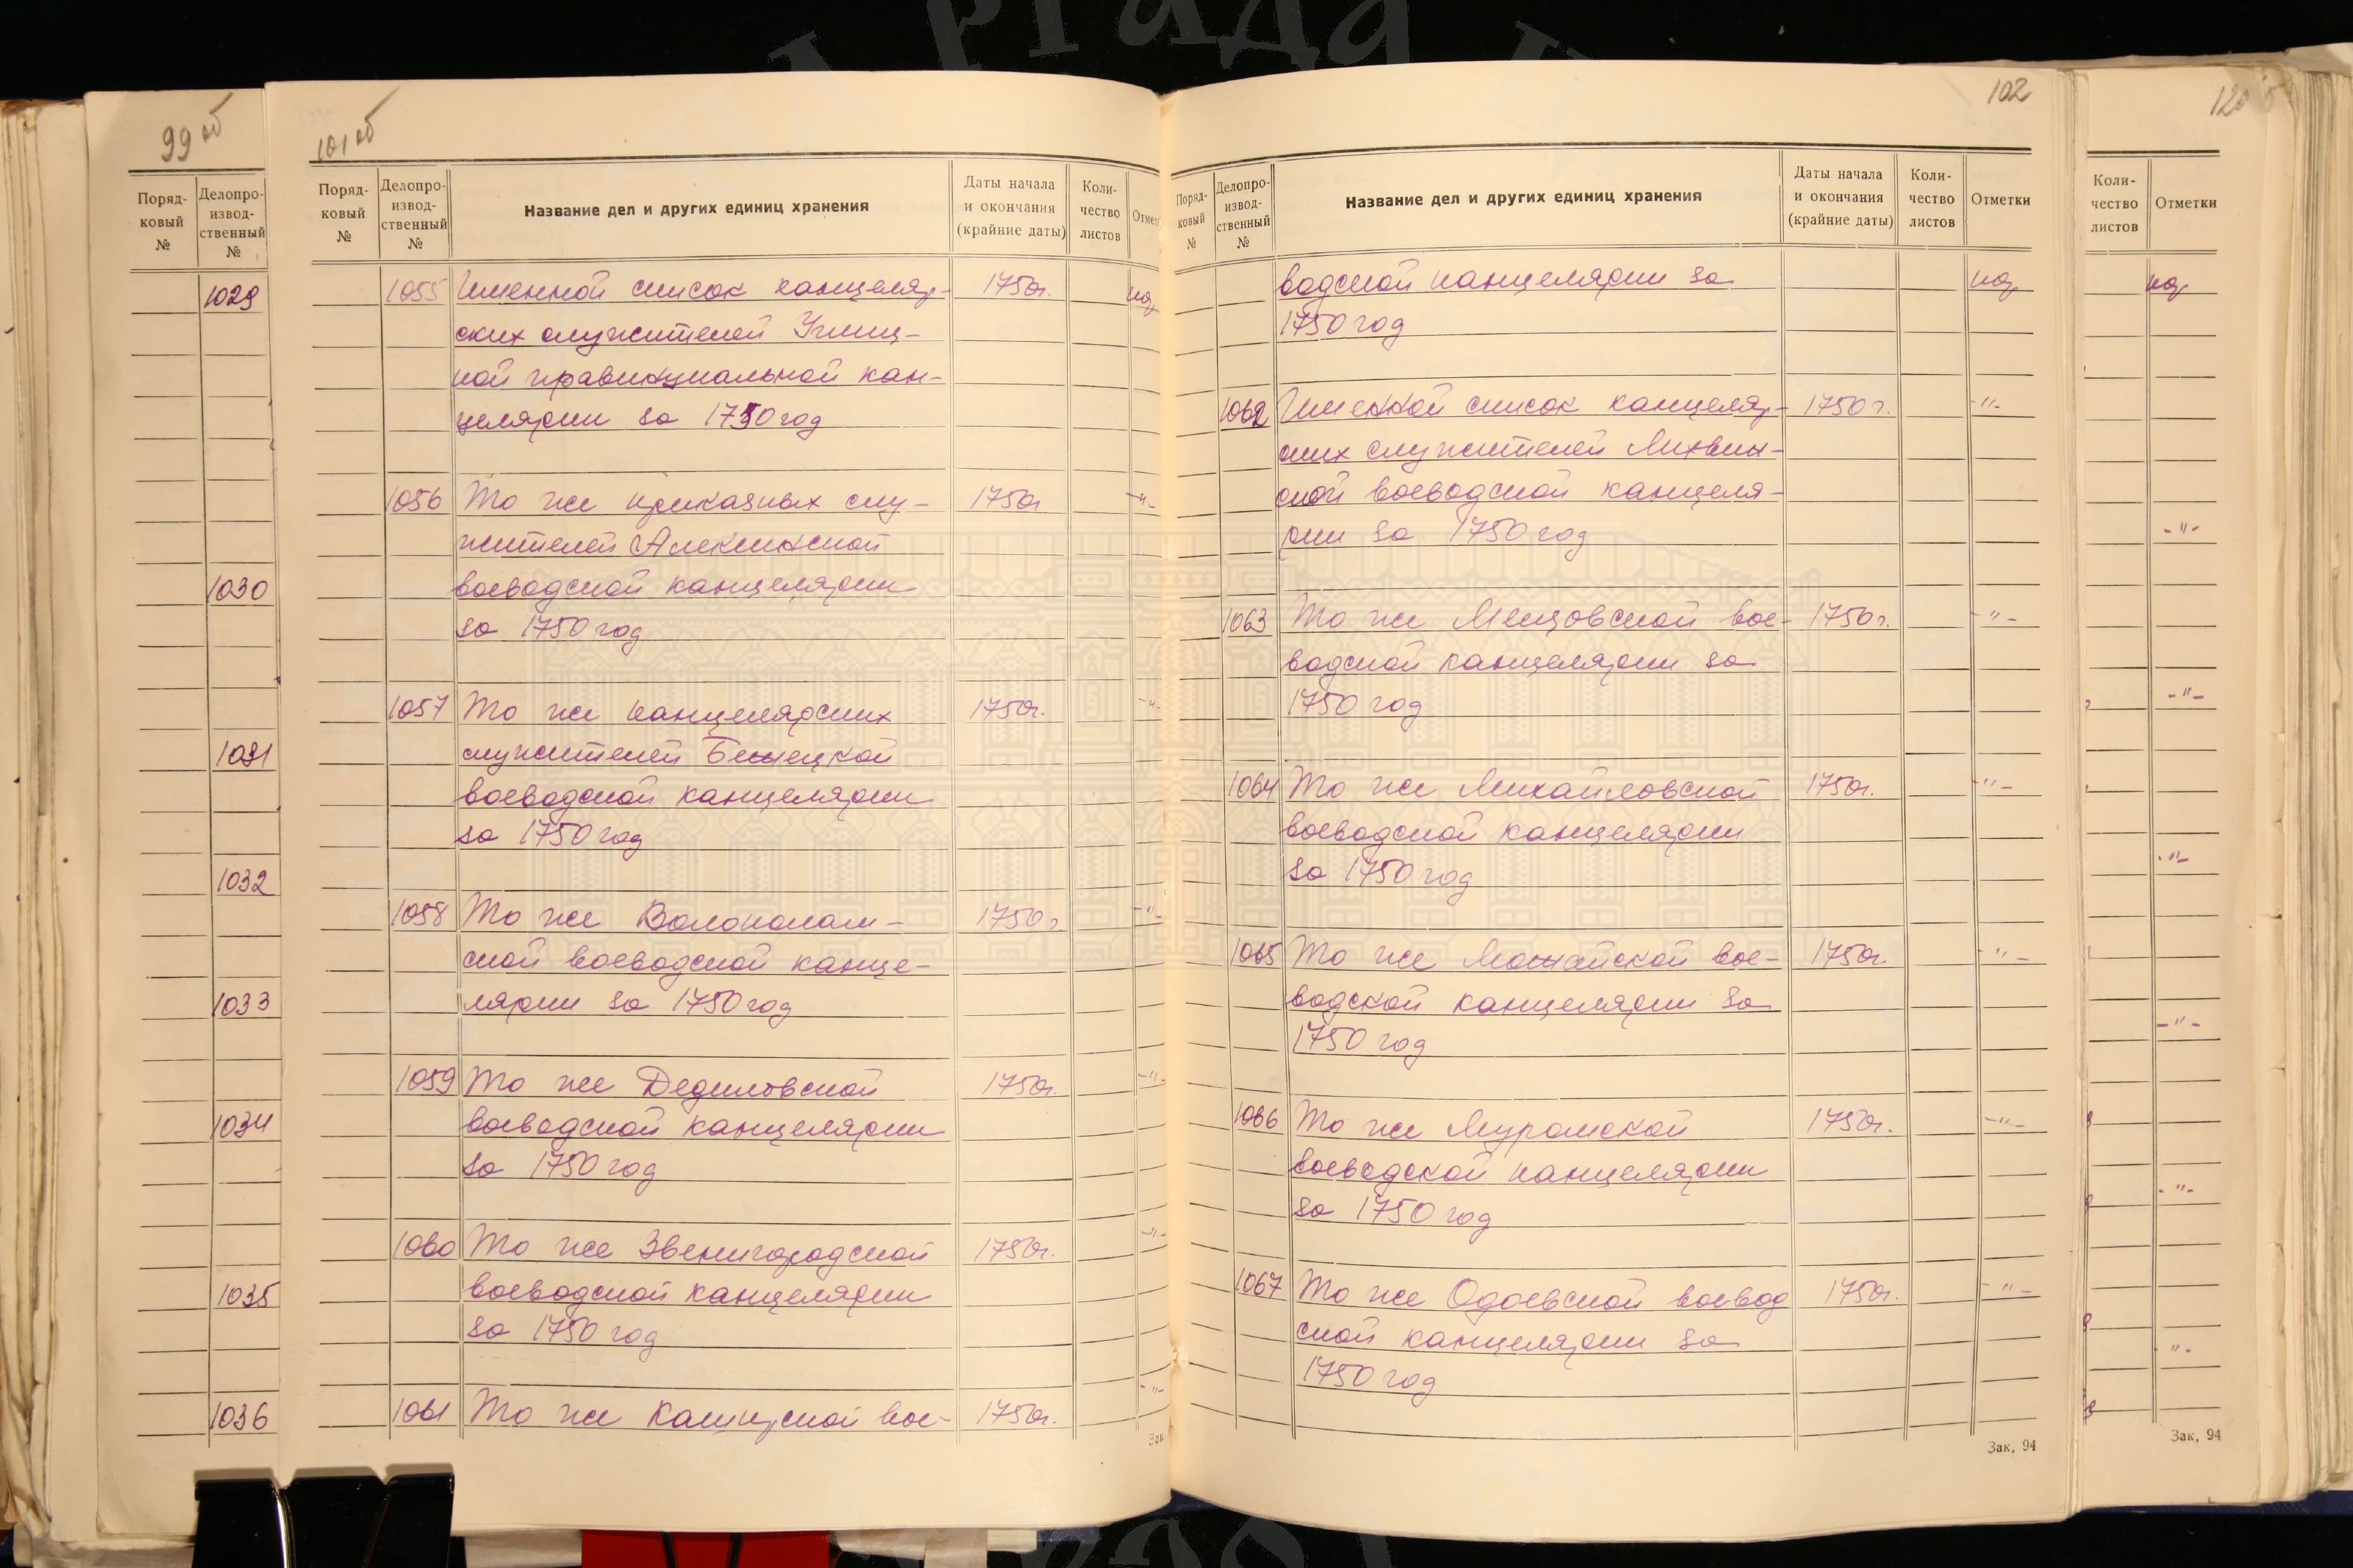 99 об
Поряд-
ковый
№
Делопро-
извод-
ственный
№
1029
1030
1031
1032
1033
1034
1035
1036
101 об
Поряд-
ковый
№
Делопро-
извод-
ственный
№
Название дел и других единиц хранения
Даты начала
и окончания
(крайние даты)
Коли-
чество
листов
1055 Именной список канцеляр- 1750г.
ских служителей Углиц-
кой правинциальной кан-
целярии за 1750 год
1056 То же приказных слу- 1750г -"-
жителей Алексинской
воеводской канцелярии
за 1750 год
1057 То же канцелярских 1750г. -"-
служителей Бежецкой
воеводской канцелярии
за 1750 год
1058 То же Волоколам- 1750г -"-
ской воеводской канце-
лярии за 1750 год
1059 То же Дедиловской 1750г. -"-
воеводской канцелярии
за 1750 год
1060 То же Звенигородской 1750г. -"-
воеводской канцелярии
за 1750 год
1061 То же Каширской вое- 1750г. -"-
102
Поряд-
ковый
№
Делопро-
извод-
ственный
№
Название дел и других единиц хранения
Даты начала
и окончания
(крайние даты)
Коли-
чество
листов
Отметки
водской канцелярии за
1750 год
1062 Именной список канцеляр- 1750 г. -"-
ских служителей Лихвин-
ской воеводской канцеля-
рии за 1750 год
1063 То же Мещовской вое- 1750 г. -"-
водской канцелярии за
1750 год
1064 То же Михайловской 1750г. -"-
воеводской канцелярии
за 1750 год
1065 То же Можайской вое- 1750г -"-
водской канцелярии за
1750 год
1066 То же Муромской 1750г. -"-
воеводской канцелярии
за 1750 год
1067 То же Одоевской воевод 1750г. -"-
ской канцелярии за
1750 год
Зак, 94
Коли-
чество
листов
Отметки
-"-
-"-
-"-
-"-
-"-
-"-
Зак, 94